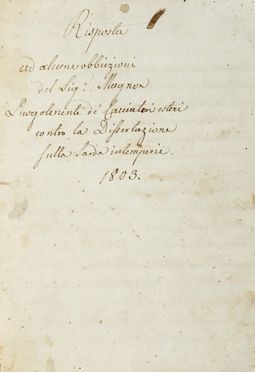 Risposta
ad alcune obbiezioni
del Sig.r Magnon
Luogotenente de' Cacciatori esteri
contro la Dissertazione
sulla Sarda intemperie.
1803.